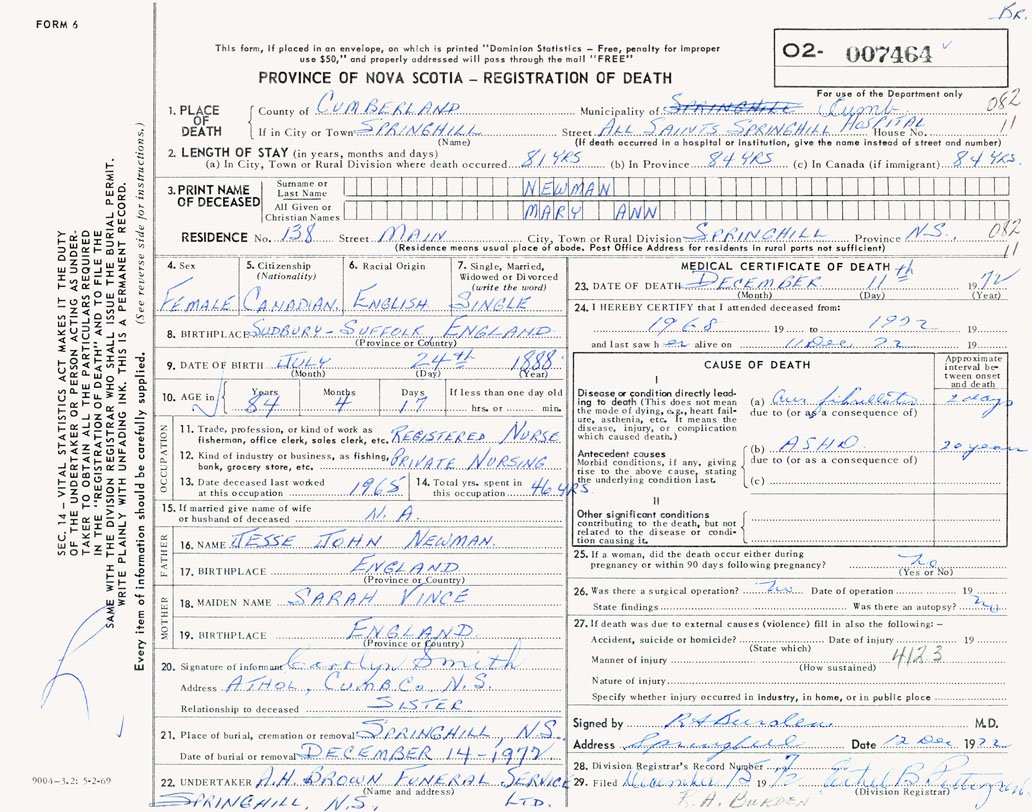 Br.
FORM 6
This form, if placed in an envelope, on which is printed "Dominion Statistics – Free, penalty for improper
use $50," and properly addressed will pass through the mail "FREE"
O2- 007464
PROVINCE OF NOVA SCOTIA – REGISTRATION OF DEATH
For use of the Department only
082
11
1. PLACE OF DEATH
County of CUMBERLAND Municipality of SPRINGHILL Cumb.
If in City or Town SPRINGHILL Street ALL SAINTS SPRINGHILL HOSPITAL House No.
(Name) (If death occurred in a hospital or institution, give the name instead of street and number)
2. LENGTH OF STAY (in years, months and days)
(a) In City, Town or Rural Division where death occurred 81 YRS (b) In Province 84 YRS (c) In Canada (if immigrant) 84 YRS.
3. PRINT NAME OF DECEASED
Surname or Last Name NEWMAN
All Given or Christian Names MARY ANN
RESIDENCE No. 138 Street MAIN City, Town or Rural Division SPRINGHILL Province N.S. 082
(Residence means usual place of abode. Post Office Address for residents in rural parts not sufficient) 11
4. Sex
FEMALE
5. Citizenship
(Nationality)
CANADIAN.
6. Racial Origin
ENGLISH
7. Single, Married,
Widowed or Divorced
(write the word)
SINGLE
8. BIRTHPLACE SUDBURY - SUFFOLK, ENGLAND.
(Province or Country)
9. DATE OF BIRTH JULY 24th 1888
(Month) (Day) (Year)
10. AGE in
Years Months Days If less than one day old
84 4 17 hrs. or min.
OCCUPATION
11. Trade, profession, or kind of work as
fisherman, office clerk, sales clerk, etc. REGISTERED NURSE
12. Kind of industry or business, as fishing,
bank, grocery store, etc. PRIVATE NURSING
13. Date deceased last worked
at this occupation 1965
14. Total yrs. spent in
this occupation 46 YRS
15. If married give name of wife
or husband of deceased N.A.
FATHER
16. NAME JESSE JOHN NEWMAN.
17. BIRTHPLACE ENGLAND
(Province or Country)
MOTHER
18. MAIDEN NAME SARAH VINCE
19. BIRTHPLACE ENGLAND.
(Province or Country)
20. Signature of informant Carolyn Smith
Address ATHOL, CUMB. CO. N.S.
Relationship to deceased SISTER
21. Place of burial, cremation or removal SPRINGHILL, N.S.
Date of burial or removal DECEMBER 14 - 1972
22. UNDERTAKER A.H. BROWN FUNERAL SERVICE
(Name and address)
SPRINGHILL, N.S. LTD.
MEDICAL CERTIFICATE OF DEATH
23. DATE OF DEATH DECEMBER 11th 1972
(Month) (Day) (Year)
24. I HEREBY CERTIFY that I attended deceased from:
1968 19 to 1972 19
and last saw h er alive on 11 Dec 72 19
CAUSE OF DEATH
Approximate
interval be-
tween onset
and death
I
Disease or condition directly lead-
ing to death (This does not mean
the mode of dying, e.g., heart fail-
ure, asthenia, etc. It means the
disease, injury, or complication
which caused death.)
(a) 2 days
due to (or as a consequence of)
Antecedent causes
Morbid conditions, if any, giving
rise to the above cause, stating
the underlying condition last.
(b) ASHD 20 years
due to (or as a consequence of)
(c)
II
Other significant conditions
contributing to the death, but not
related to the disease or condi-
tion causing it.
25. If a woman, did the death occur either during
pregnancy or within 90 days following pregnancy? no
(Yes or No)
26. Was there a surgical operation? no Date of operation 19
State findings Was there an autopsy? no
27. If death was due to external causes (violence) fill in also the following: –
Accident, suicide or homicide? Date of injury 19
(State which)
Manner of injury 4123
(How sustained)
Nature of injury
Specify whether injury occurred in industry, in home, or in public place
Signed by R A Burden M.D.
Address Springhill Date 12 Dec 1972
28. Division Registrar's Record Number 7
29. Filed December 15 1972
(Division Registrar)
R. A. BURDEN
SEC. 14 – VITAL STATISTICS ACT MAKES IT THE DUTY
OF THE UNDERTAKER OR PERSON ACTING AS UNDER-
TAKER TO OBTAIN ALL THE PARTICULARS REQUIRED
IN THE "REGISTRATION OF DEATH" AND TO FILE THE
SAME WITH THE DIVISION REGISTRAR WHO SHALL ISSUE THE BURIAL PERMIT.
WRITE PLAINLY WITH UNFADING INK. THIS IS A PERMANENT RECORD.
Every item of information should be carefully supplied. (See reverse side for instructions.)
9004–3.2: 5-2-69